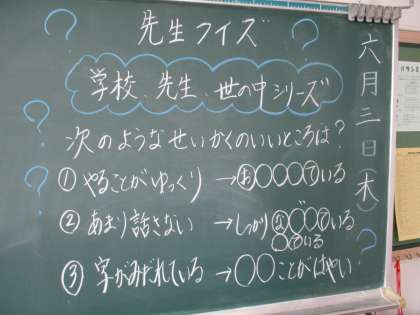 先生クイズ
学校、先生、世の中シリーズ
次のようなせいかくのいいところは?
① やることがゆっくり →お○○○ているで
② あまり話さない →しっかりな○○ている
○○ている
③ 字がみだれている →○○ことがはやい
六月三日(木)